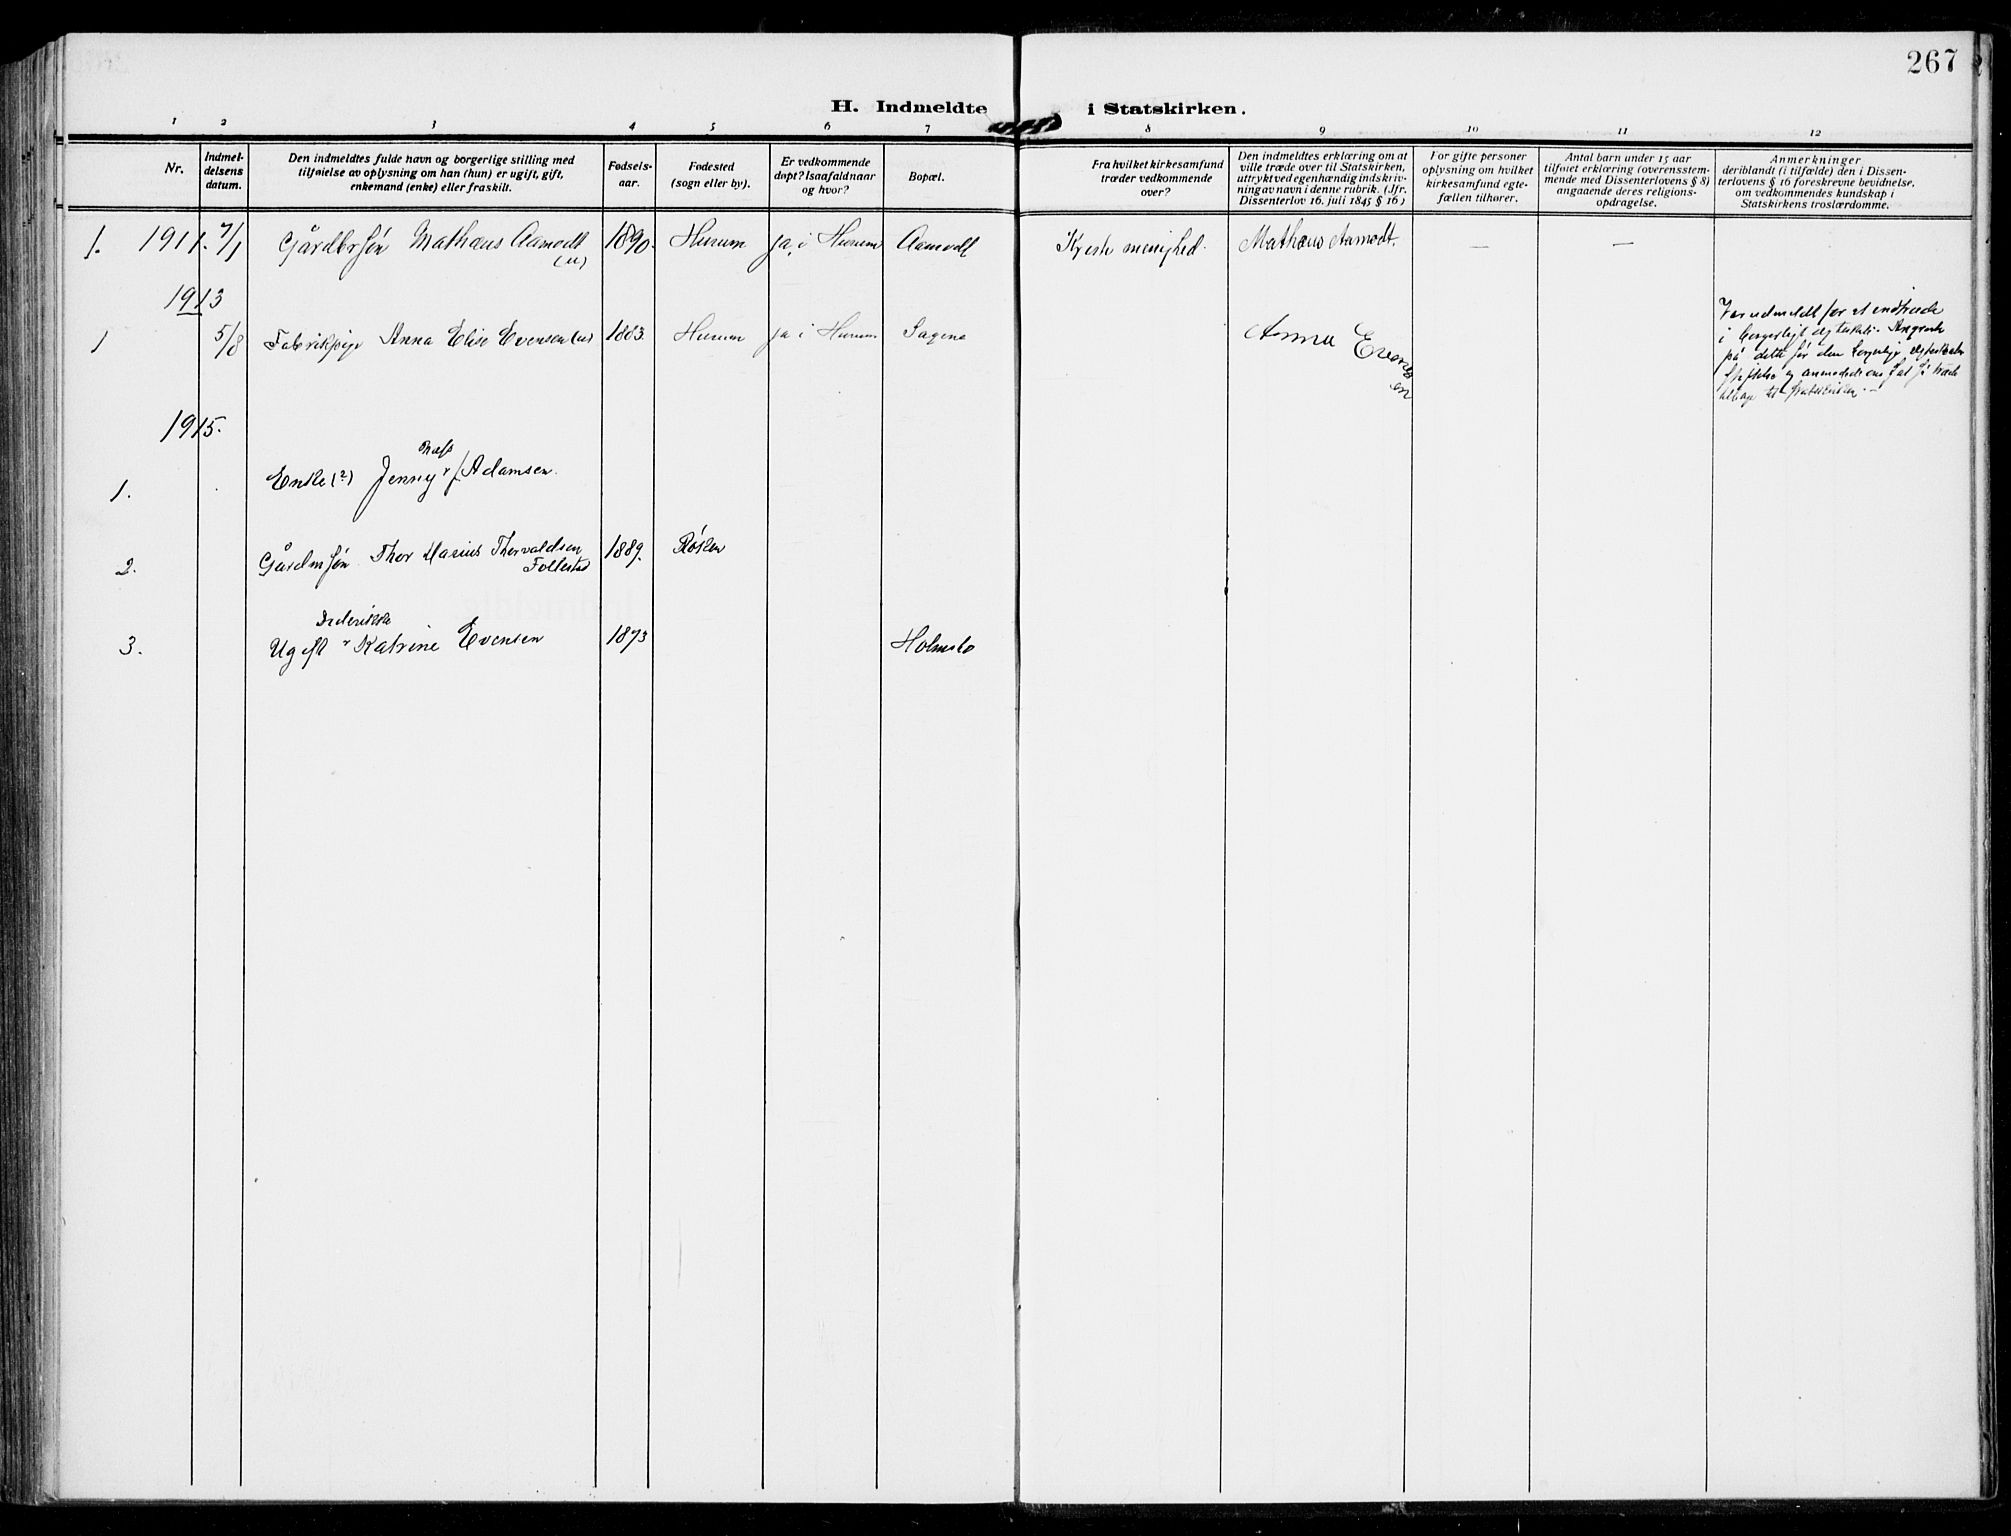 267
H. Indmeldte i Statskirken.
1 2 3 4 5 6 7 8 9 10 11 12
Nr.
Indmel-
delsens
datum.
Den indmeldtes fulde navn og borgerlige stilling med
tilføielse av oplysning om han (hun) er ugift, gift,
enkemand (enke) eller fraskilt.
Fødsels-
aar.
Fødested
(sogn eller by).
Er vedkommende
døpt? Isaafald naar
og hvor?
Bopæl.
Fra hvilket kirkesamfund
træder vedkommende
over?
Den indmeldtes erklæring om at
ville træde over til Statskirken,
uttrykt ved egenhændig indskriv-
ning av navn i denne rubrik. (Jfr.
Dissenterlov 16. juli 1845 § 16)
For gifte personer
oplysning om hvilket
kirkesamfund egte-
fællen tilhører.
Antal barn under 15 aar
tilføiet erklæring (overensstem-
mende med Dissenterlovens § 8)
angaaende deres religions-
opdragelse.
Anmerkninger
deriblandt (i tilfælde) den i Dissen-
terlovens § 16 foreskrevne bevidnelse,
om vedkommendes kundskap i
Statskirkens troslærdomme.
1. 1911. 7/1 Gårdbrsøn Mathæus Aamodt 1890. Hurum ja, i Hurum Aamodt menighed. Mathæus Aamodt. — —
(u)
1913
1 5/8 Fabrikpige Anna Elise Evensen (u) 1883. Hurum ja i Hurum Sagene Anna Evens
en
Var udmeldt for at indtræde
i borgerligt ægteskab. Angrede
på dette før den borgerlige
og anmodede om at få træde
tilbage til Statskirken. —
1915.
1. Enke (?) Jenny f. Adamsen.
2. Gårdmsøn Thor Marius Thorvaldsen 1889. Røken
Follestad
Frederikke
3. Ugift Katrine Evensen 1893 Holmsbo